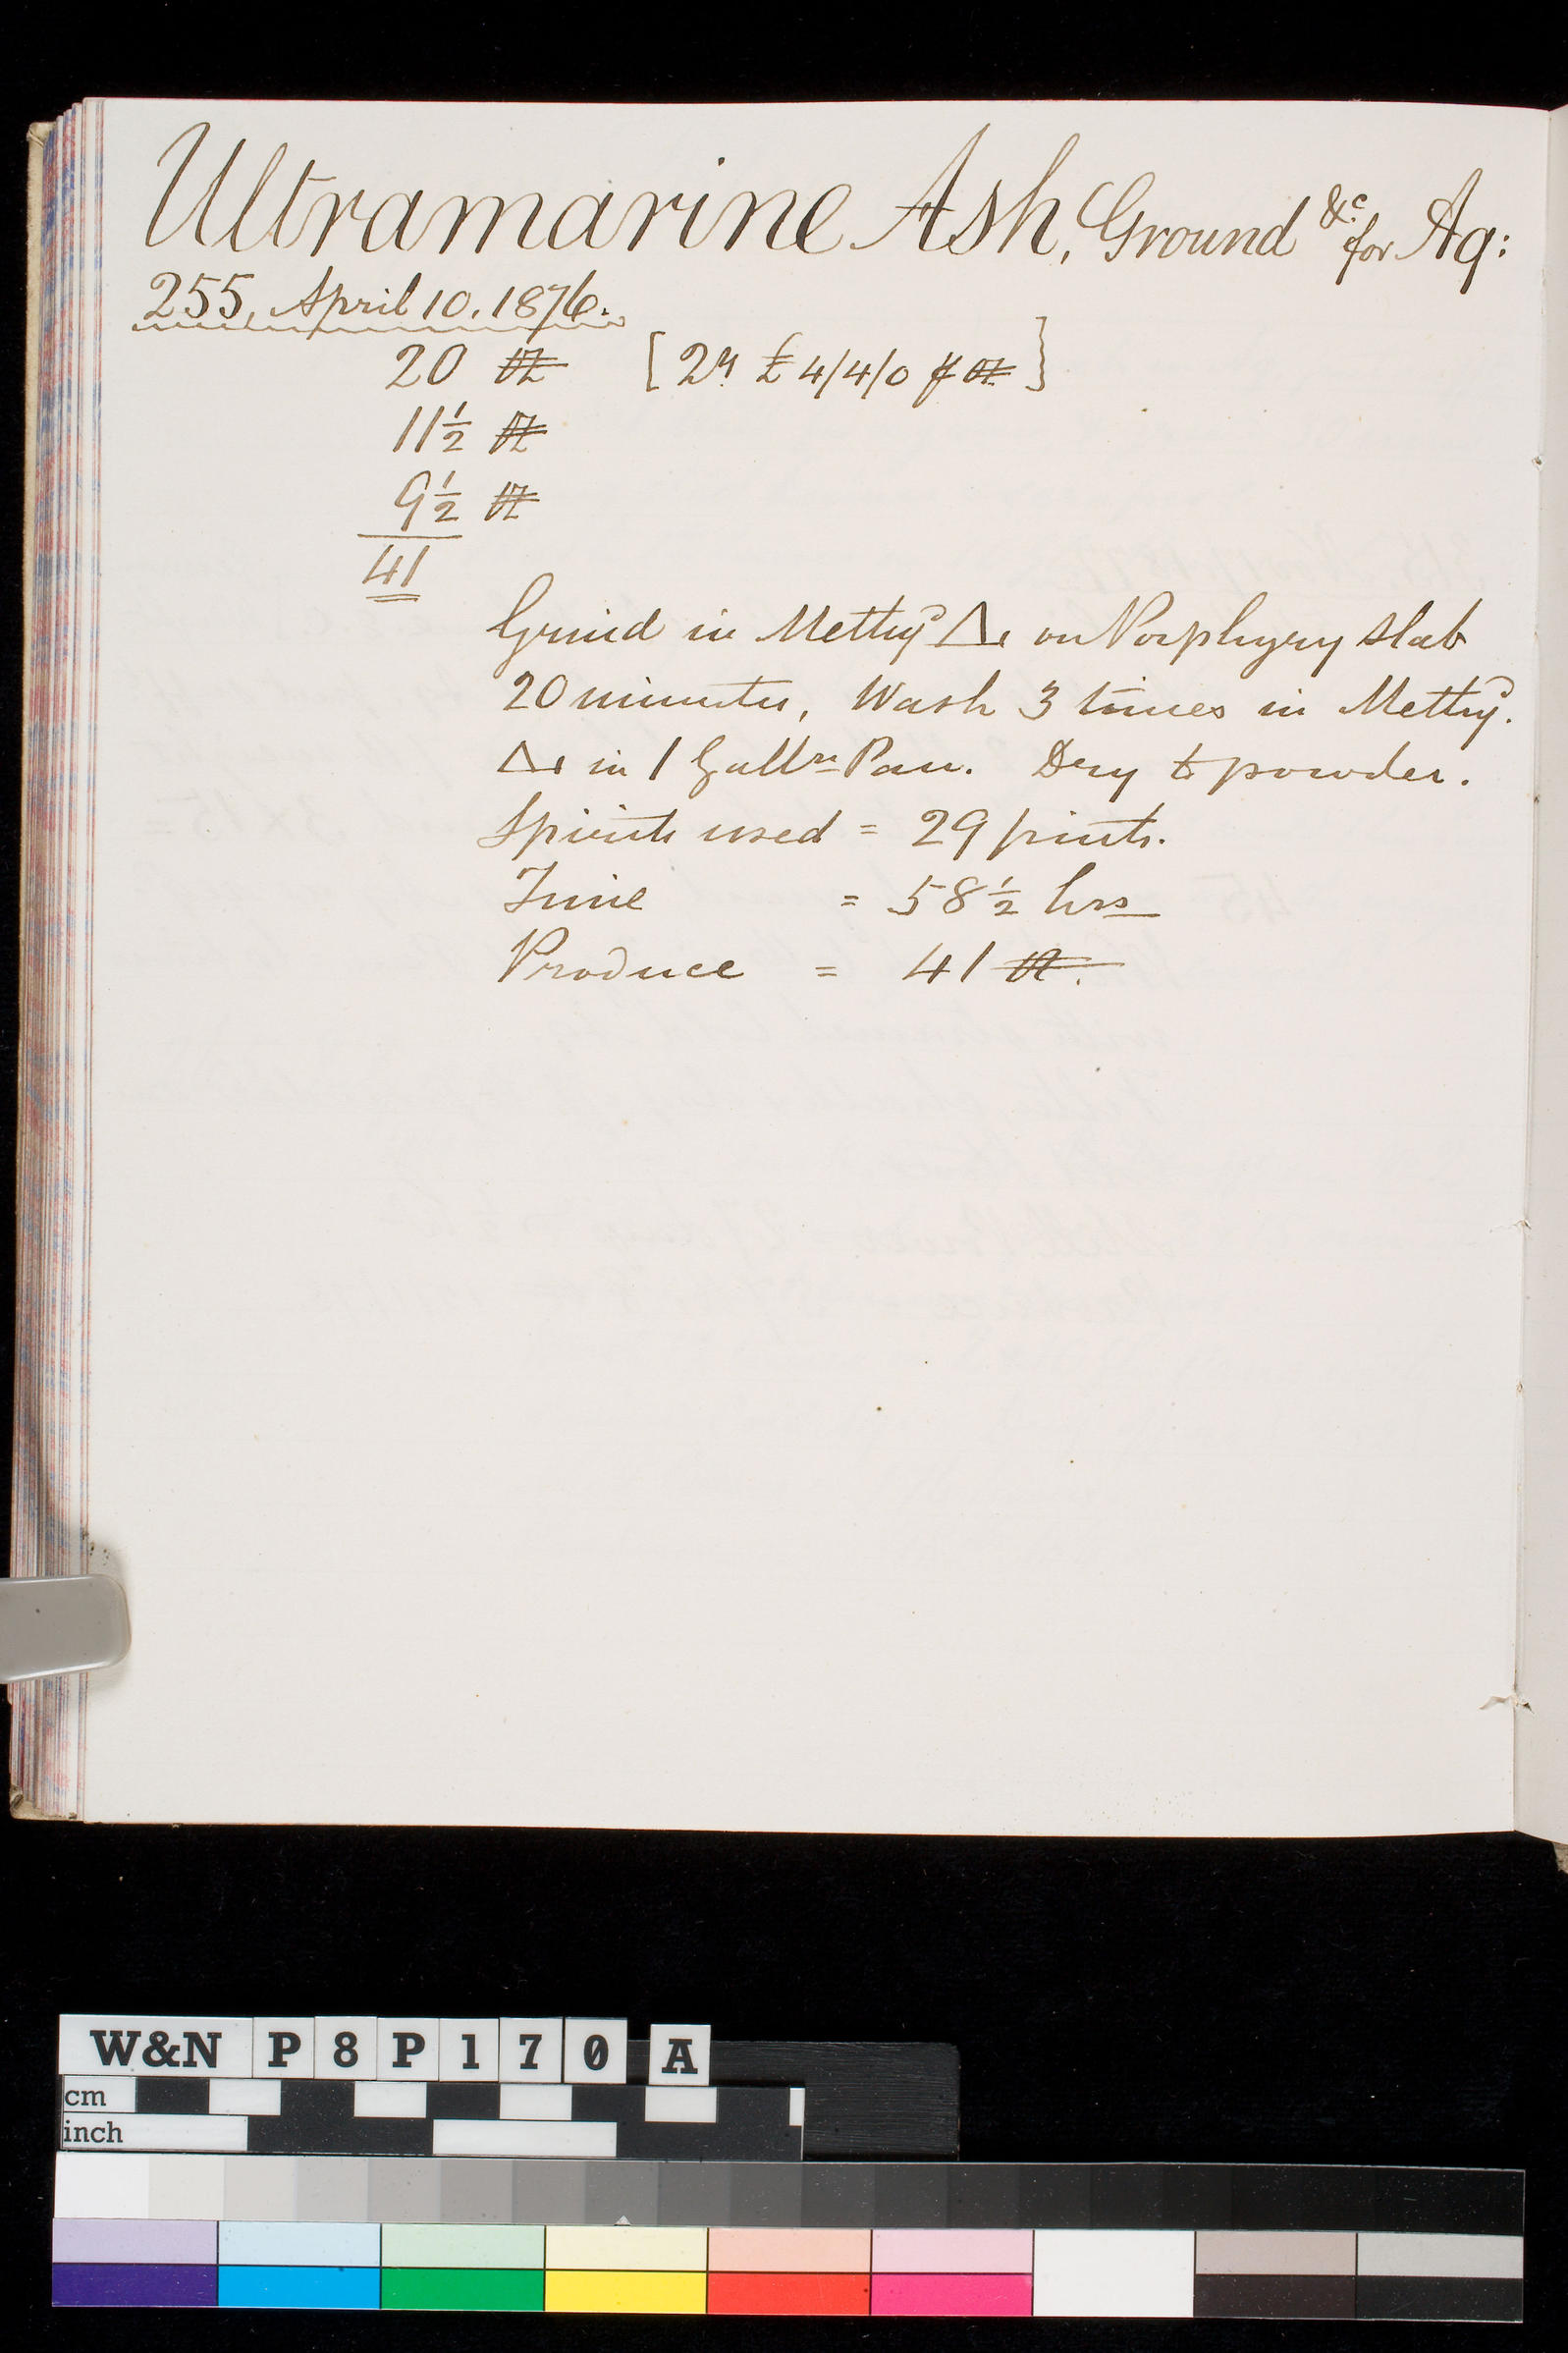 Ultramarine Ash, Ground &c. for Aq:
255, April 10. 1876.
20 oz [2n £4/4/0 ⅌ oz]
11½ oz
9½ oz
41
Grind in Methyd Δ. on Porphyry slab
20 minutes, Wash 3 times in Methyd.
Δ. in 1 Gallon Pan. Dry to powder.
Spirits used = 29 pints.
Time = 58½ hrs
Produce = 41 oz.
W&N P8P170 A
cm
inch